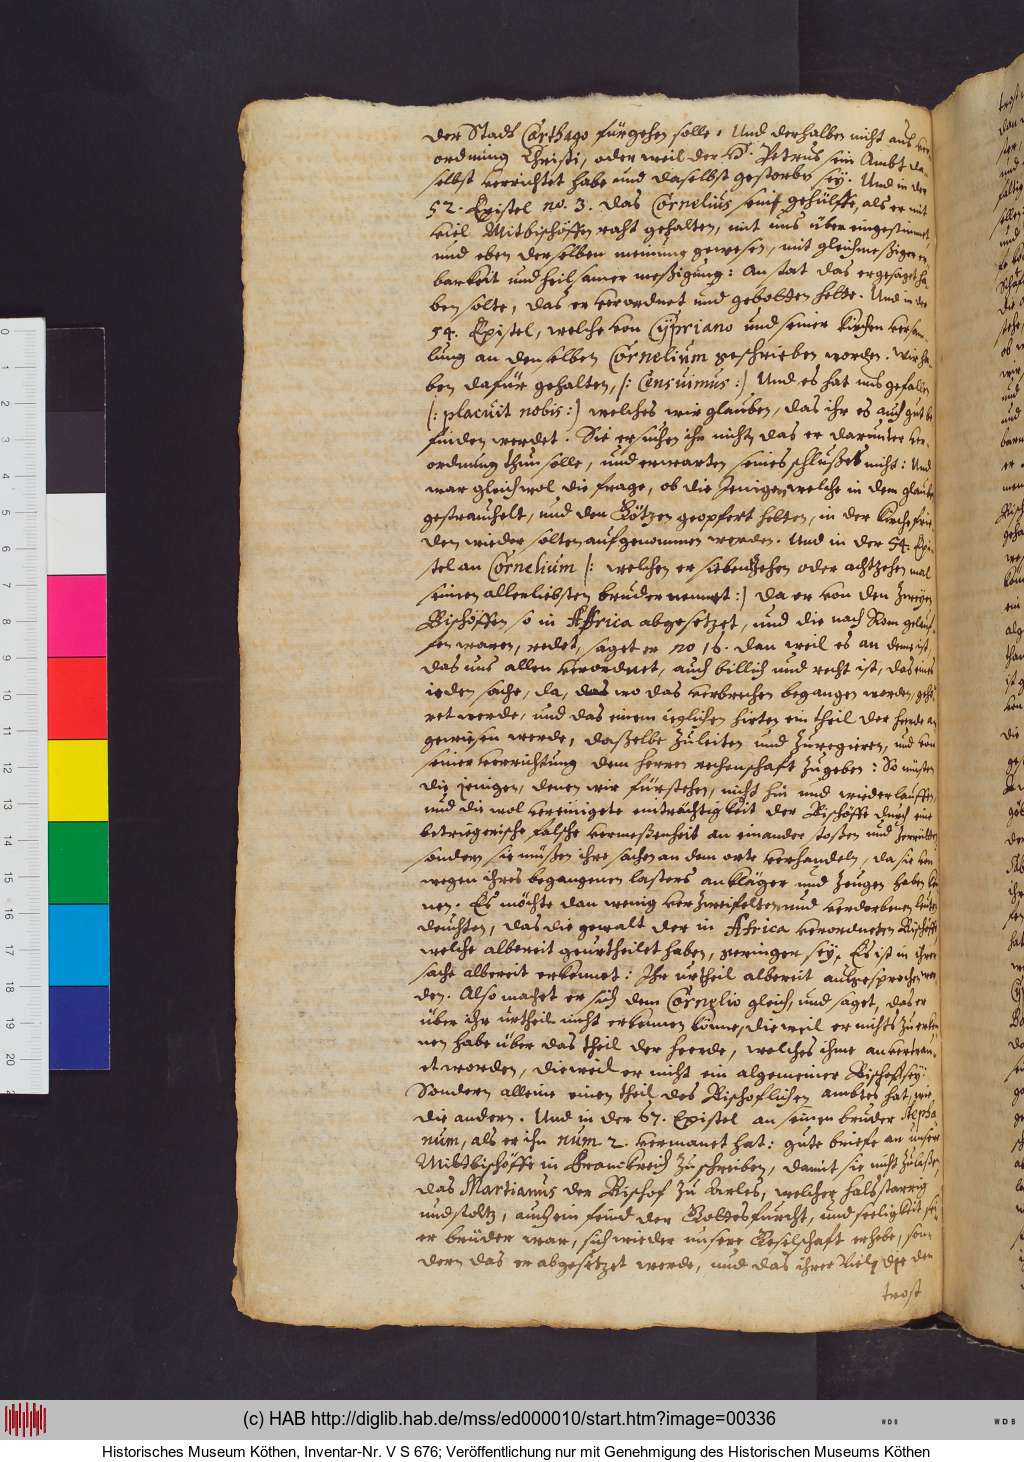 der Stadt Carthago fürgehen solle. Und derhalben nicht aus ver-
ordnung Christi, oder weil der H. Petrus sein Ambt da-
selbst verrichtet habe und daselbst gestorben sey. Und in der
52. Epistel no. 3. das Cornelius sein gehülffe, als er mit
viel Mitbischöffen raht gehalten, mit uns über eingestimmet,
und eben derselben meinung gewesen, mit gleichmeßiger er-
barkeit und heilsamer meßigung: An stat das er gesaget ha-
ben solte, das er verordnet und gebotten hette. Und in der
54. Epistel, welche von Cypriano und seiner Kirchen versam-
lung an denselben Cornelium geschrieben worden. Wir ha-
ben dafür gehalten, (: Censuimus :) Und es hat uns gefallen
(: placuit nobis :) welches wir glauben, das ihr es auch gut be-
finden werdet. Sie ersuchen ihn nicht, das er darunter ver-
ordnung thun solle, und erwarten seines schlußes nicht: Und
war gleichwol die frage, ob die Jenigen welche in dem glauben
gestrauchelt, und den Götzen geopfert hetten, in der Kirche frie-
den wieder solten aufgenommen werden. Und in der 54. Epi-
stel an Cornelium (: welchen er siebenzehen oder achtzehen mal
seinen allerliebsten bruder nennet :) da er von den zweyen
Bischöffen so in Affrica abgesetzet, und die nach Rom gelauf-
fen waren, redet, saget er no 16. dan weil es an deme ist,
das uns allen verordnet, auch billich und recht ist, das eines
ieden sache, da, das wo das verbrechen begangen worden, gehö-
ret werde, und das einem ieglichen hirten ein theil der heerde an
gewiesen werde, daßelbe zu leiten und zu regieren, und von
seiner verrichtung dem Herren rechenschaft zu geben: So müsten
die jenigen, denen wir fürstehen, nicht hin und wieder lauffen,
und die wol vereinigete einträchtigkeit der Bischöffe durch eine
betriegerische falsche vermeßenheit an einander stoßen und zerrütten
sondern sie müßen ihre sachen an dem orte verhandeln, da sie von
wegen ihres begangenen lasters ankläger und zeugen haben kön-
nen. Es möchte dan wenig verzweifelten und verdorbenen leuten
deuchten, das die gewalt der in Africa verordneten Bischöffe,
welche albereit geurtheilet haben, geringer sey, Es ist in ihrer
sache albereit erkennet: Ihr urtheil albereit ausgesprochen wor-
den. Also machet er sich dem Cornelio gleich, und saget, das er
über ihr urtheil nicht erkennen könne, die weil er nichts zu erken-
nen habe über das theil der heerde, welches ihme an vertrau-
et worden, die weil er nicht ein algemeiner Bischof sey.
Sondern alleine einen theil des Bischoflichen ambtes hat, wie
die andern. Und in der 67. Epistel an seinen bruder Stepha
num, als er ihn num 2. vermanet hat: gute briefe an unser
Mitbischöffe in Franckreich zu schreiben, damit sie nicht zulaßen,
das Martianus der Bischof zu Arles, welcher halsstarrig
und stoltz, auch ein feind der Gottesfurcht, und seeligkeit sein
er brüder war, sich wieder unsere Geselschaft erhebe, son-
dern das er abgesetzet werde, und das ihrer viele die den
trost
(c) HAB http://diglib.hab.de/mss/ed000010/start.htm?image=00336
Historisches Museum Köthen, Inventar-Nr. V S 676; Veröffentlichung nur mit Genehmigung des Historischen Museums Köthen